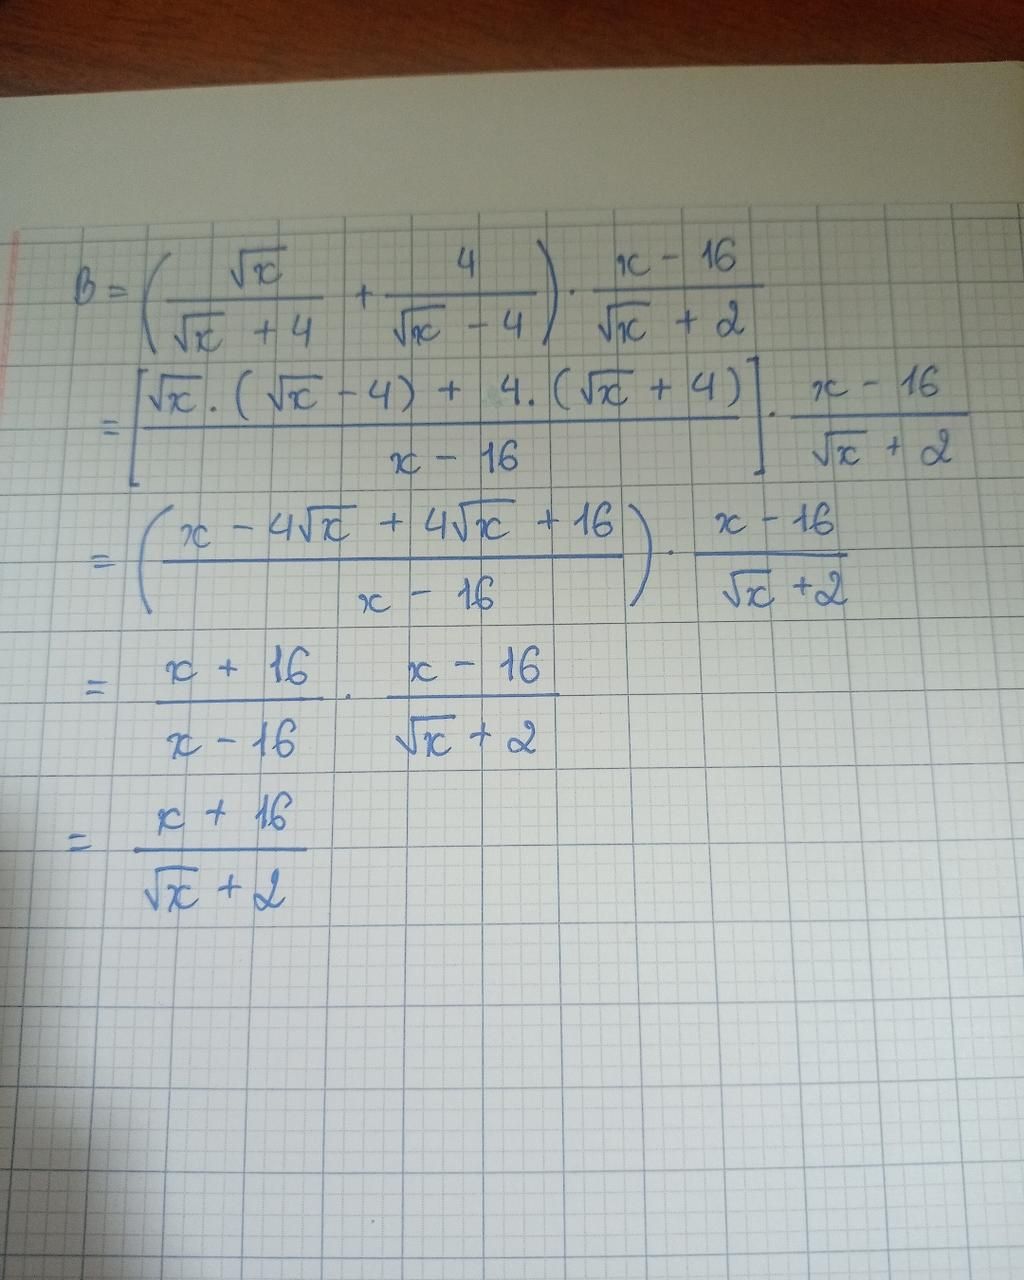 B = (√x / (√x + 4) + 4 / (√x - 4)) · (x - 16) / (√x + 2)
= [(√x . (√x - 4) + 4. (√x + 4)) / (x - 16)] · (x - 16) / (√x + 2)
= ((x - 4√x + 4√x + 16) / (x - 16)) · (x - 16) / (√x + 2)
= (x + 16) / (x - 16) · (x - 16) / (√x + 2)
= (x + 16) / (√x + 2)